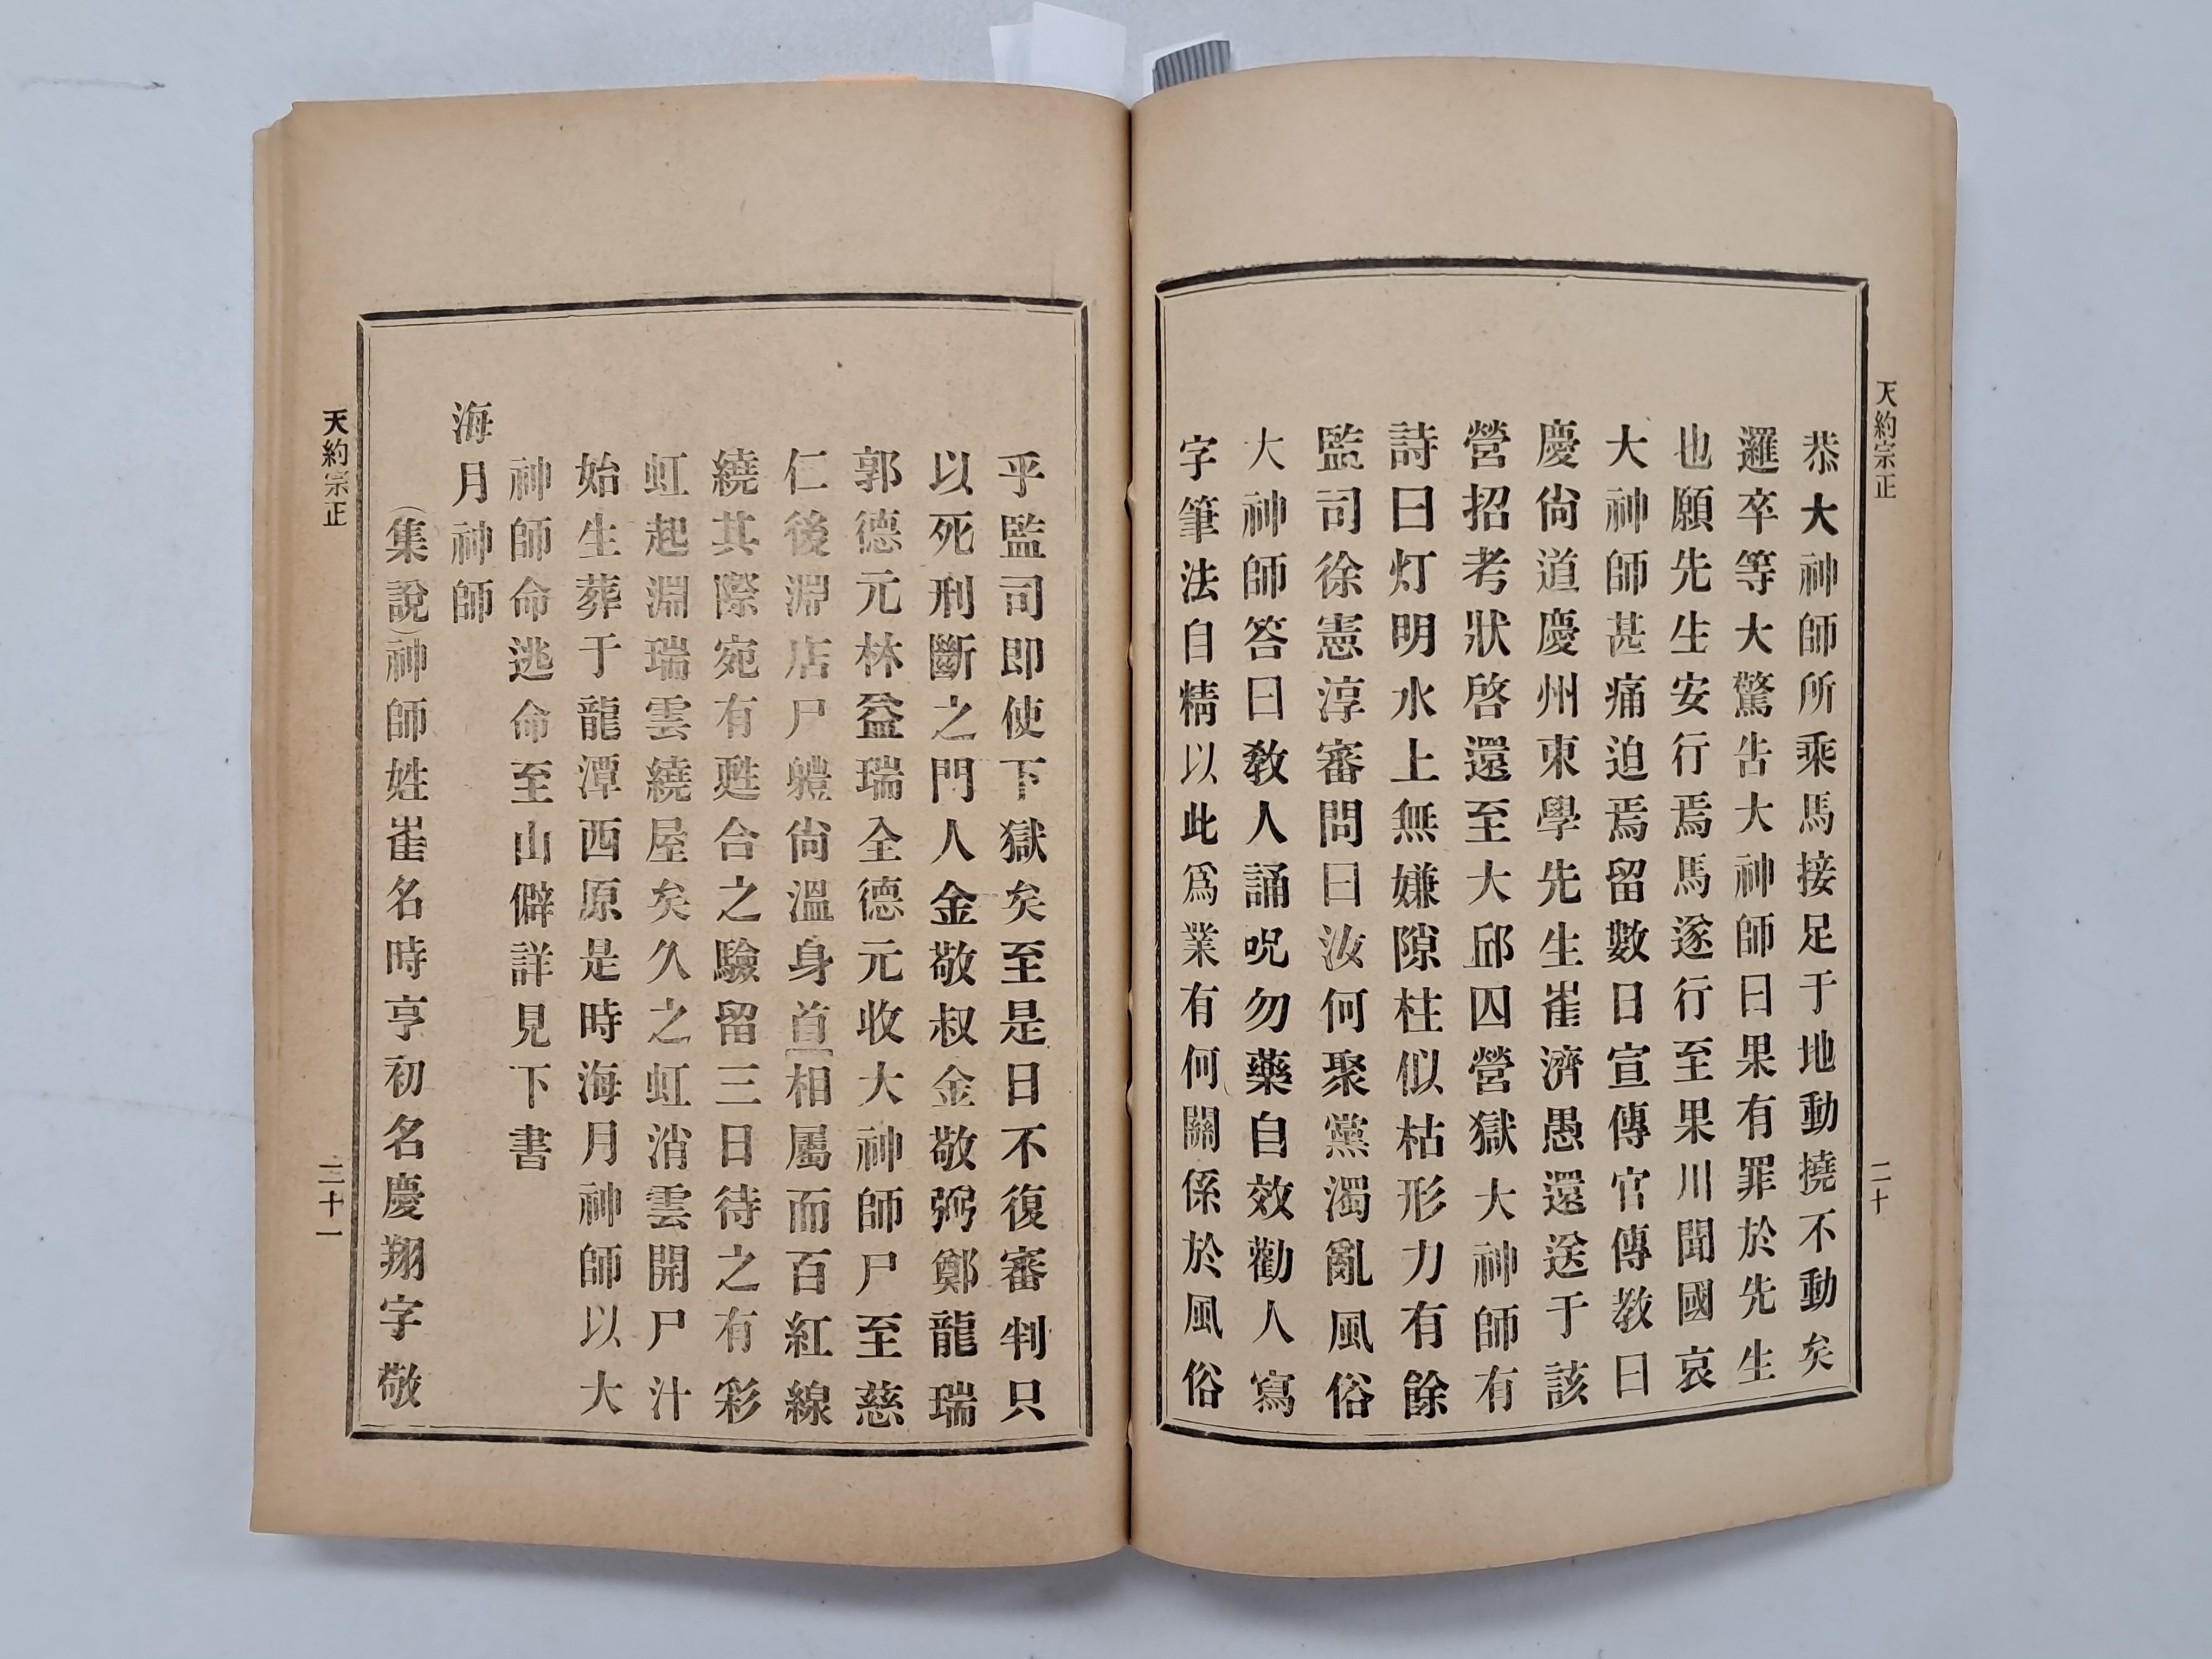 天約宗正
二十
恭大神師所乘馬接足于地動撓不動矣
邏卒等大驚告大神師曰果有罪於先生
也願先生安行焉馬遂行至果川聞國哀
大神師甚痛迫焉留數日宣傳官傳教曰
慶尙道慶州東學先生崔濟愚還送于該
營招考狀啓還至大邱囚營獄大神師有
詩曰灯明水上無嫌隙柱似枯形力有餘
監司徐憲淳審問曰汝何聚黨濁亂風俗
大神師答曰教人誦呪勿藥自效勸人寫
字筆法自精以此爲業有何關係於風俗
乎監司即使下獄矣至是日不復審判只
以死刑斷之門人金敬叔金敬弼鄭龍瑞
郭德元林益瑞全德元收大神師尸至慈
仁後淵店尸軆尙溫身首相屬而百紅線
繞其際宛有甦合之驗留三日待之有彩
虹起淵瑞雲繞屋矣久之虹消雲開尸汁
始生葬于龍潭西原是時海月神師以大
神師命逃命至山僻詳見下書
海月神師
(集說)神師姓崔名時亨初名慶翔字敬
天約宗正
二十一